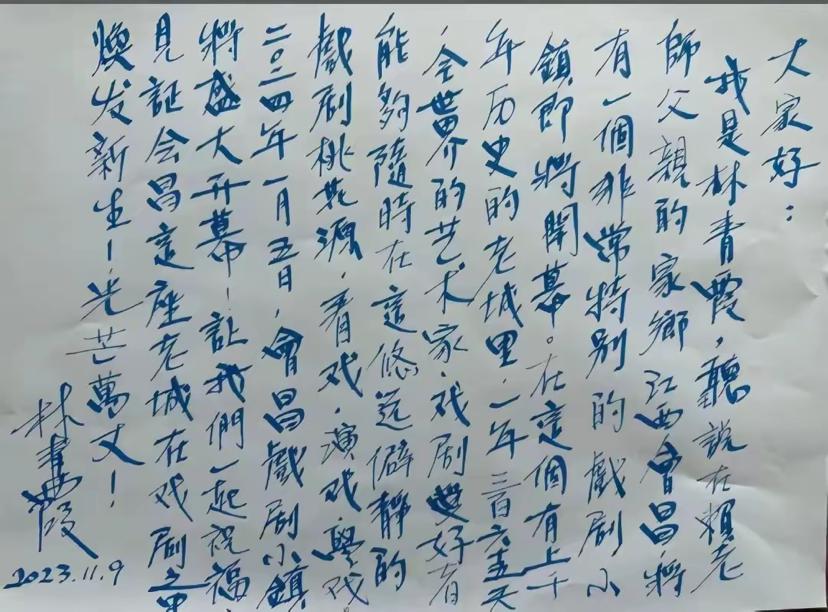 大家好：
我是林青霞，聽説在賴老
師父親的家鄉江西會昌，將
有一個非常特别的戲剧小
鎮即將開幕。在這個有上千
年历史的老城里，一年三百六十五天
全世界的艺术家、戏剧愛好者
能夠隨時在這悠远僻静的
戲剧桃花源，看戏，演戏學戏
二〇二四年一月五日，會昌戲剧小鎮
將盛大开幕！讓我們一起祝福，
見証会昌這座老城在戏剧之中
焕发新生！光芒萬丈！
林青霞
2023.11.9